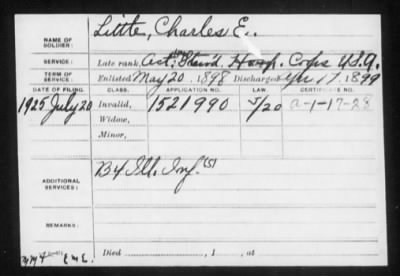 NAME OF SOLDIER: Little, Charles E.
SERVICE: Late rank, Act. Stew'd. Hosp. Corps U.S.A.
TERM OF SERVICE: Enlisted May 20, 1898 Discharged Apr 17, 1899
DATE OF FILING. CLASS. APPLICATION NO. LAW. CERTIFICATE NO.
1925 July 20 Invalid, 1521990 5/20 a-1-17-28
Widow,
Minor,
ADDITIONAL SERVICES: B 4 Ill. Inf. (S)
REMARKS:
Died , 1 , at